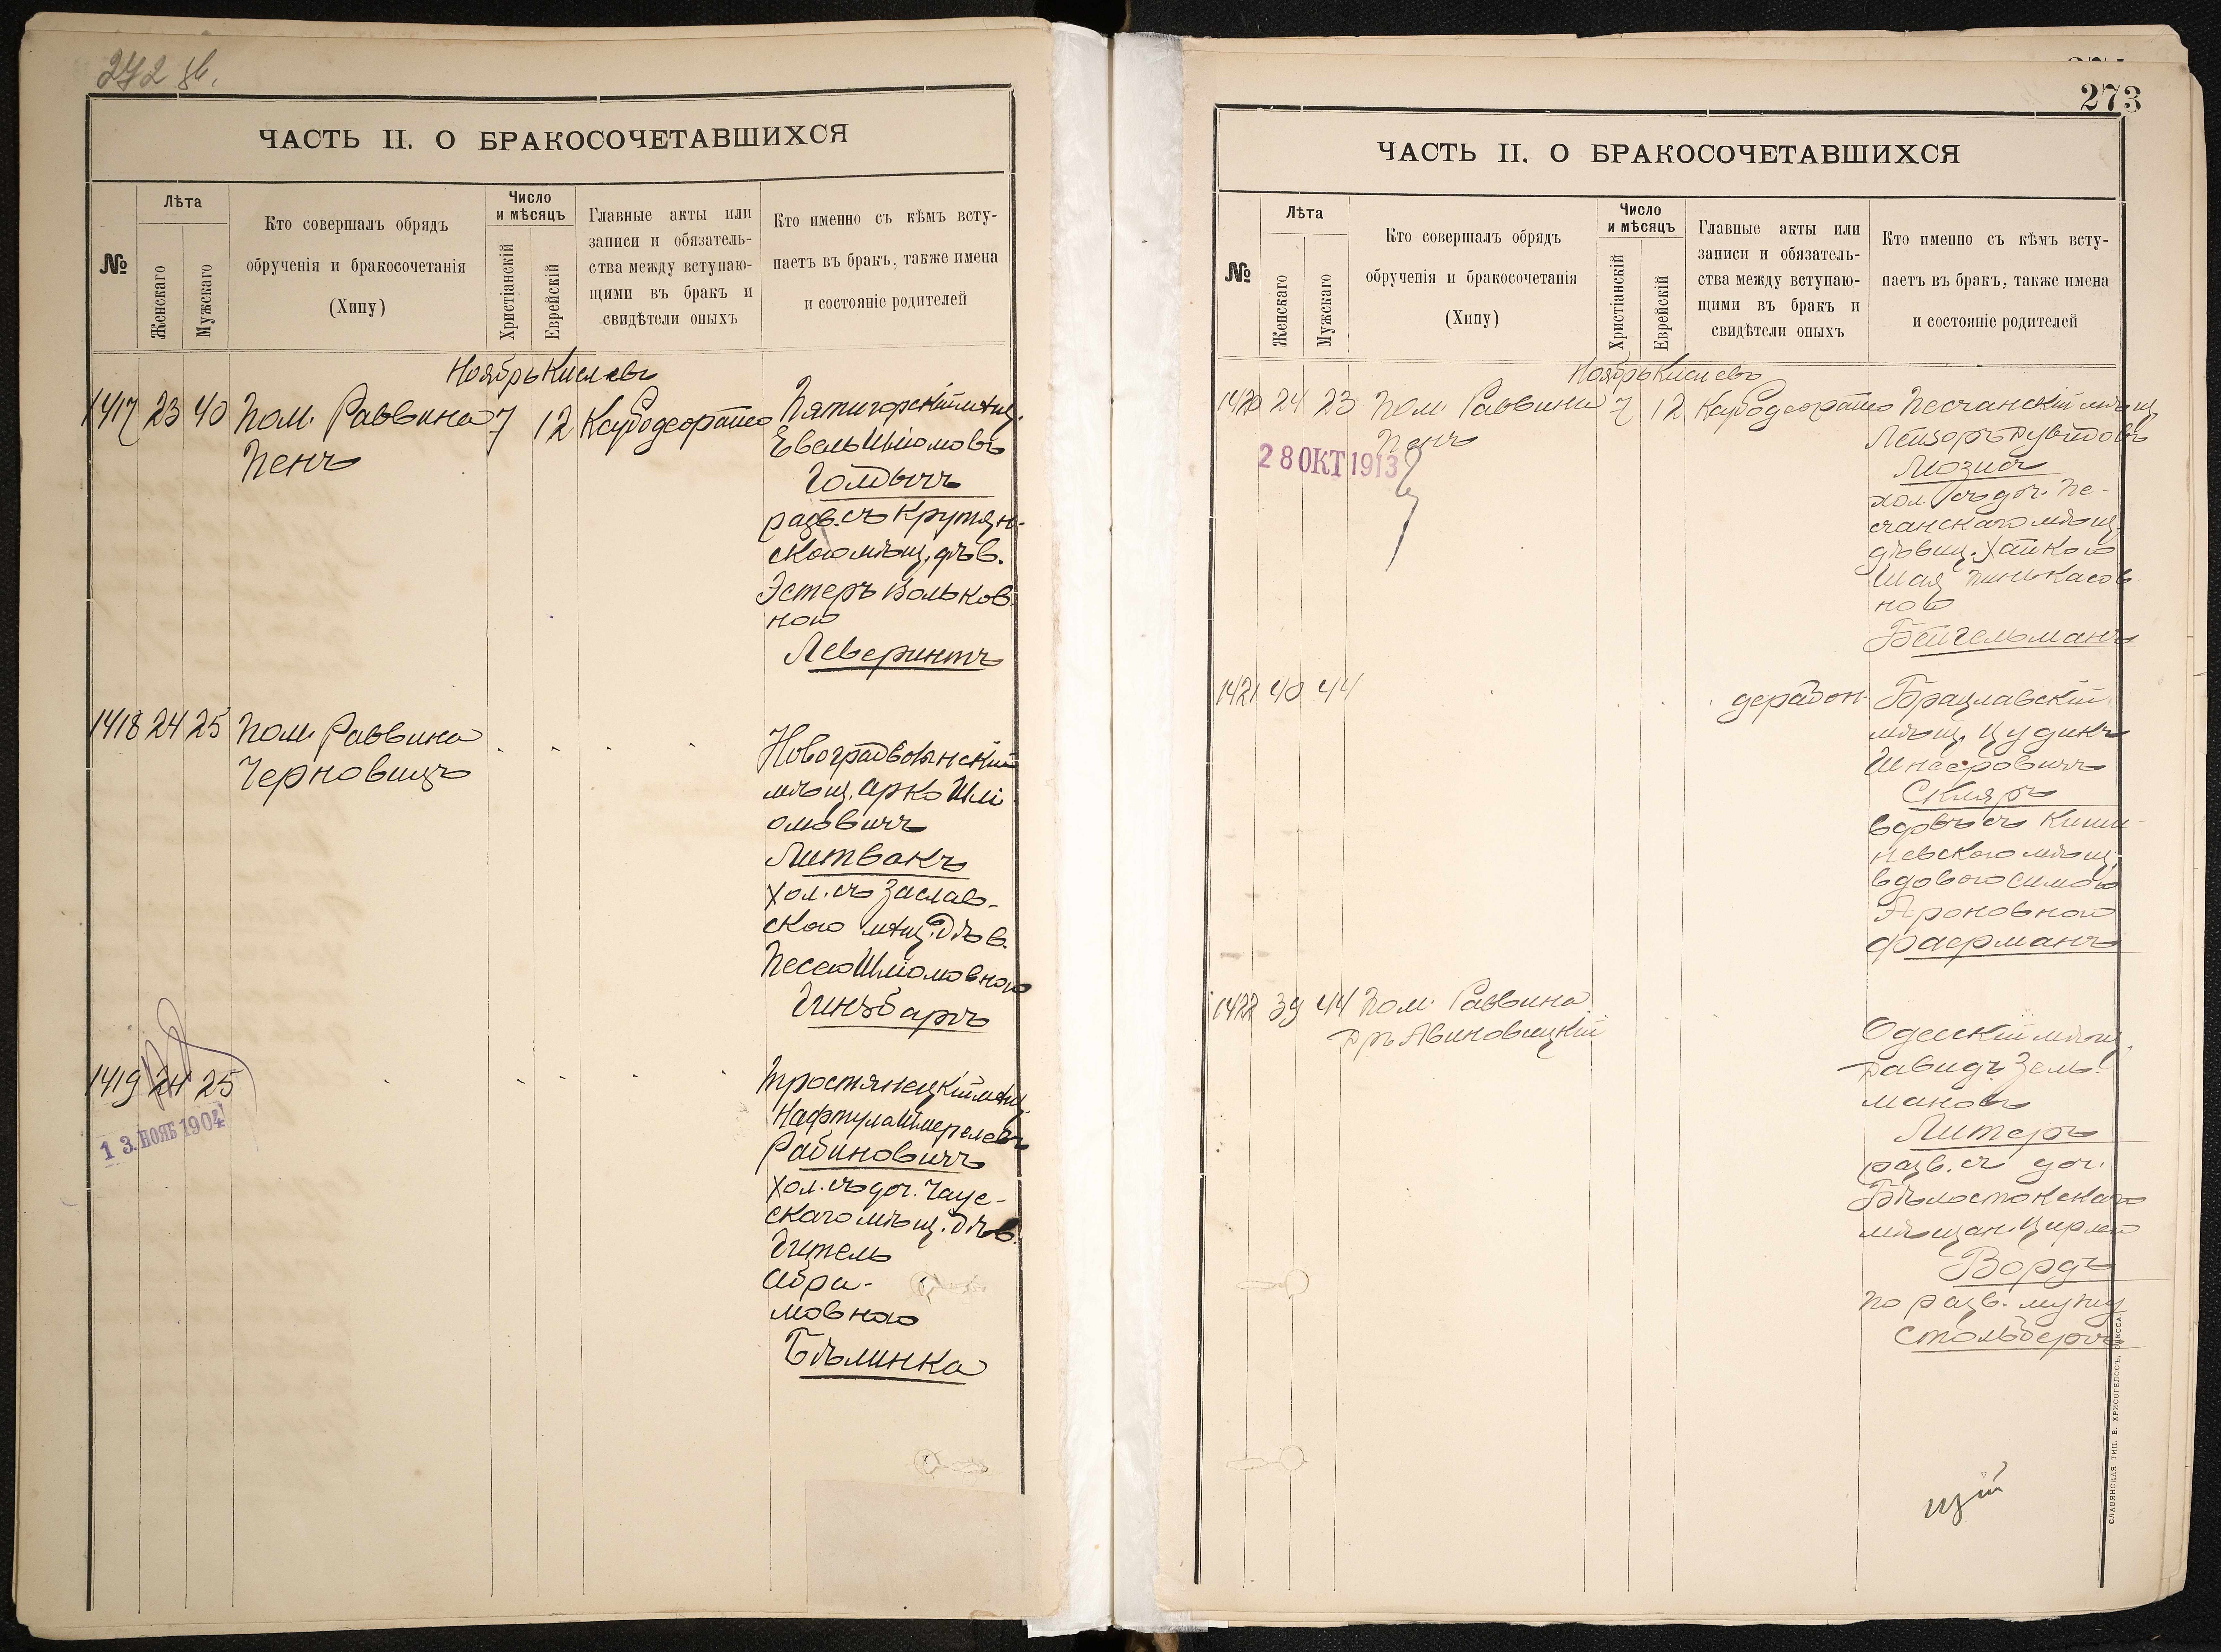 272 об.
ЧАСТЬ II. О БРАКОСОЧЕТАВШИХСЯ
№
Лѣта
Женскаго
Мужскаго
Кто совершалъ обрядъ
обрученія и бракосочетанія
(Хипу)
Число
и мѣсяцъ
Христіанскій
Еврейскій
Главные акты или
записи и обязатель-
ства между вступаю-
щими въ бракъ и
свидѣтели оныхъ
Кто именно съ кѣмъ всту-
паетъ въ бракъ, также имена
и состояніе родителей
Ноябрь Кислевъ
1417 23 40 Пом. Раввина 7 12 Пятигорскій мѣщ.
Пенъ
Евель Шліомовъ
Голдычъ
разв. съ Крутян-
скою мѣщ. дѣв.
Эстеръ Вольков-
ною
Леверинтъ
1418 24 25 Пом. Раввина
Черновицъ
Новоградволынскій
мѣщ. Арко Шлі-
омовичъ
Литвакъ
хол. съ Заслав-
скою мѣщ. дѣв.
Песею Шліомовною
Гинзбаргъ
1419 24 25
13. НОЯБ 1904
Тростянецкій мѣщ.
Нафтула Шмерелевъ
Рабиновичъ
хол. съ доч. Чаус-
скаго мѣщ. дѣв.
Гитель
Абра-
мовною
Бѣлинка
273
ЧАСТЬ II. О БРАКОСОЧЕТАВШИХСЯ
№
Лѣта
Женскаго
Мужскаго
Кто совершалъ обрядъ
обрученія и бракосочетанія
(Хипу)
Число
и мѣсяцъ
Христіанскій
Еврейскій
Главные акты или
записи и обязатель-
ства между вступаю-
щими въ бракъ и
свидѣтели оныхъ
Кто именно съ кѣмъ всту-
паетъ въ бракъ, также имена
и состояніе родителей
Ноябрь Кислевъ
1420 24 23 Пом. Раввина 7 12 Песчанскій мѣщ.
Пенъ
28 ОКТ 1913
Лейзоръ Дувидовъ
Мозис
хол. съ доч. Пе-
счанскаго мѣщ.
дѣвиц. Хайкою
Шая Пинькасов-
ною
Бейгельманъ
1421 40 44 Брацлавскій
мѣщ. Цудикъ
Шнееровичъ
Скляръ
вдовъ съ Киши-
невскою мѣщ.
вдовою Симою
Ароновною
Фаерманъ
1422 39 44 Пом. Раввина
Дръ Авиновицкій
Одесскій мѣщ.
Давидъ Зель-
мановъ
Литеръ
разв. съ доч.
Бѣлостокскаго
мѣщан. Цирлею
Вордъ
по разв. мужу
Стольбергъ
СЛАВЯНСКАЯ ТИП. Е. ХРИСОГЕЛОСЪ, ОДЕССА.